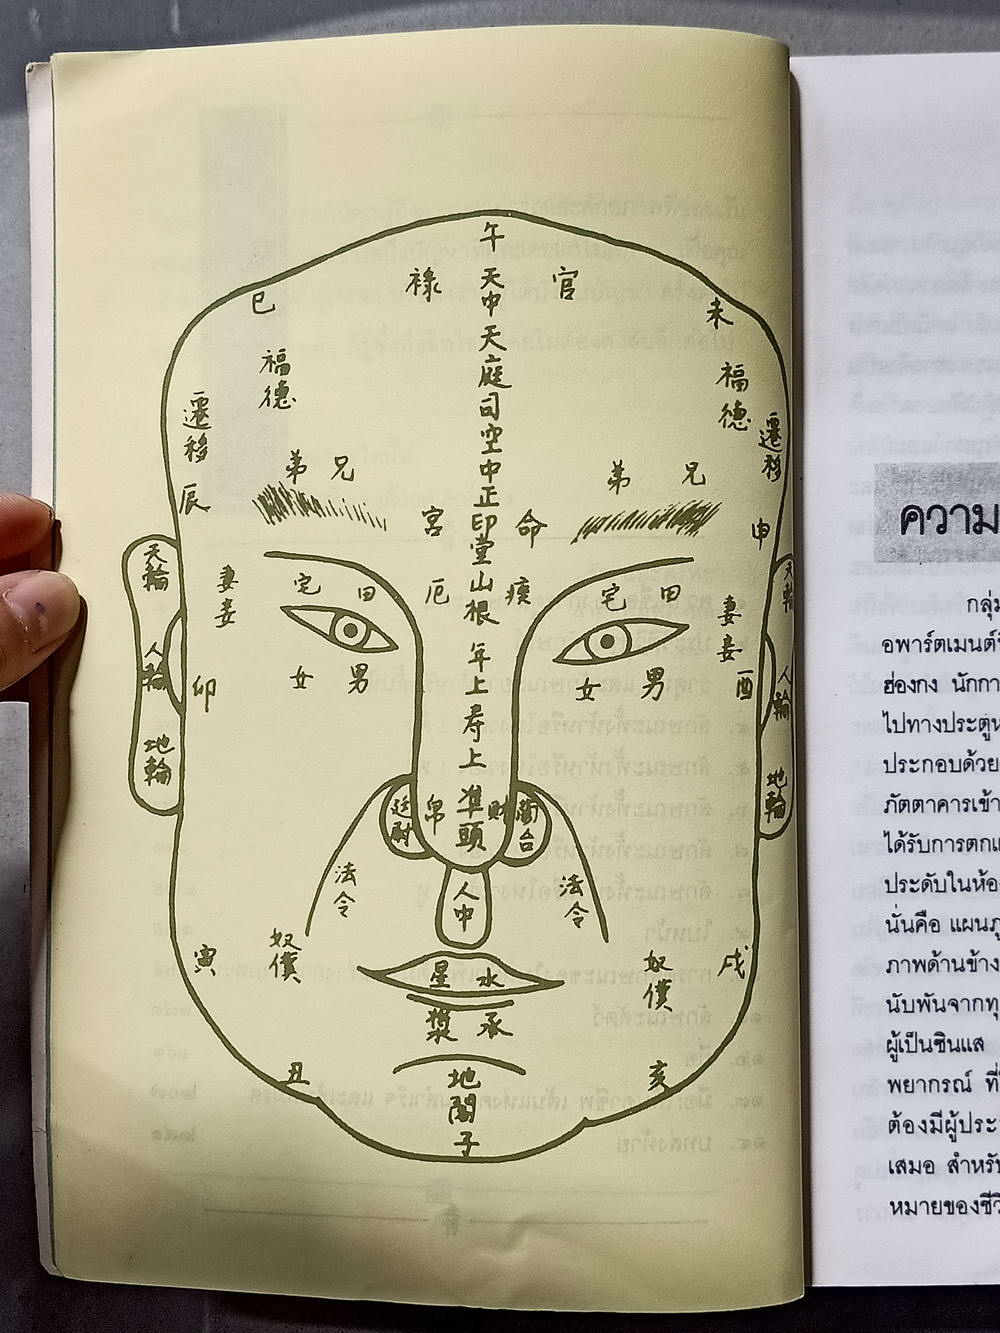 午
祿 天中 官
巳
未
天庭
福德
福德
司空
遷移
遷移
中正
弟 兄
弟 兄
辰
宮 印堂 命
申
天輪
妻妾
宅 田
厄 山根
宅 田
妻妾
天輪
人輪
卯
女 男
年上
女 男
酉
人輪
壽上
地輪
地輪
廷尉
帛 準頭 財
蘭台
法令
人中
法令
寅
奴僕
奴僕
戌
星 水
漿 承
丑
地閣
亥
子
ความ
กลุ่ม
อพาร์ตเมนต์
ฮ่องกง นักกา
ไปทางประตูห
ประกอบด้วย
ภัตตาคารเข้า
ได้รับการตกแ
ประดับในห้อ
นั่นคือ แผนภู
ภาพด้านข้าง
นับพันจากทุ
ผู้เป็นซินแส
พยากรณ์ ที่
ต้องมีผู้ประ
เสมอ สำหรับ
หมายของชีวิ